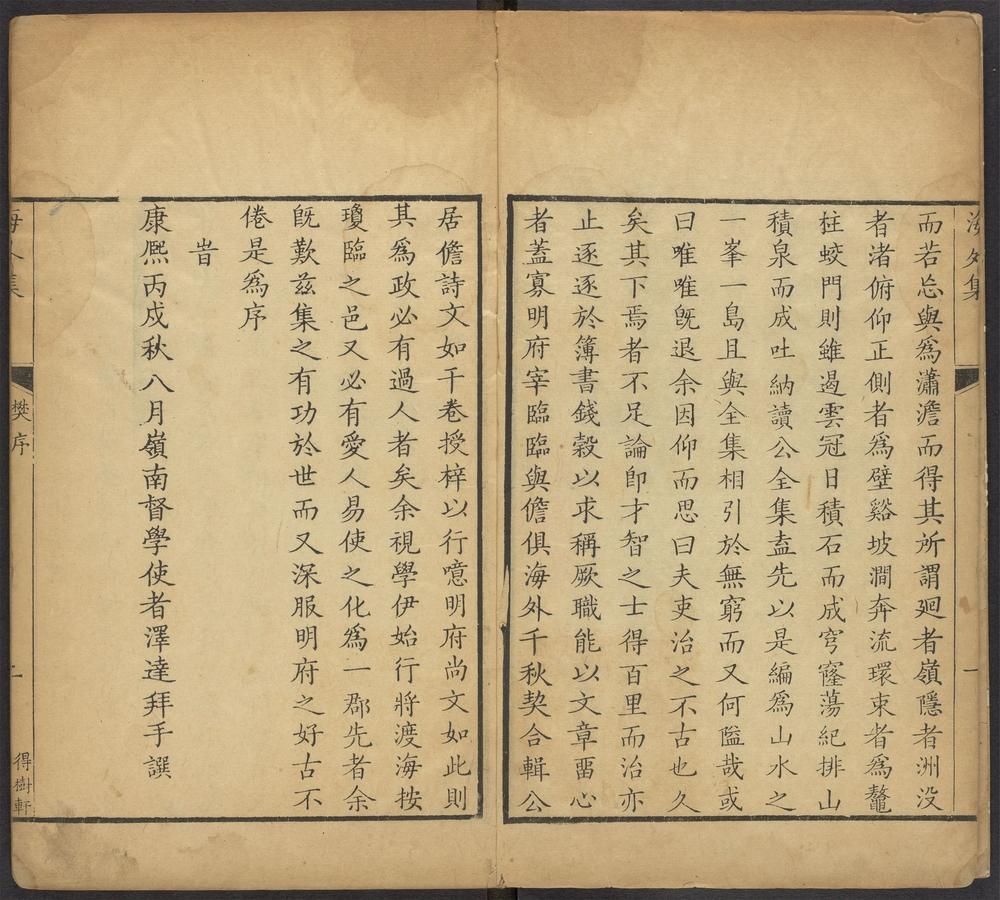 海外集
一
而若忘與爲瀟澹而得其所謂廻者嶺隱者洲没
者渚俯仰正側者爲壁谿坡澗奔流環束者爲鼇
柱蛟門則雖遏雲冠日積石而成穹窿蕩紀排山
積泉而成吐納讀公全集盍先以是編爲山水之
一峯一島且與全集相引於無窮而又何隘哉或
曰唯唯旣退余因仰而思曰夫吏治之不古也久
矣其下焉者不足論卽才智之士得百里而治亦
止逐逐於簿書錢穀以求稱厥職能以文章畱心
者蓋寡明府宰臨臨與儋俱海外千秋契合輯公
居儋詩文如干卷授梓以行噫明府尚文如此則
其爲政必有過人者矣余視學伊始行將渡海按
瓊臨之邑又必有愛人易使之化爲一郡先者余
旣歎兹集之有功於世而又深服明府之好古不
倦是爲序
旹
康熈丙戌秋八月嶺南督學使者澤達拜手譔
海外集
樊序
一
得樹軒